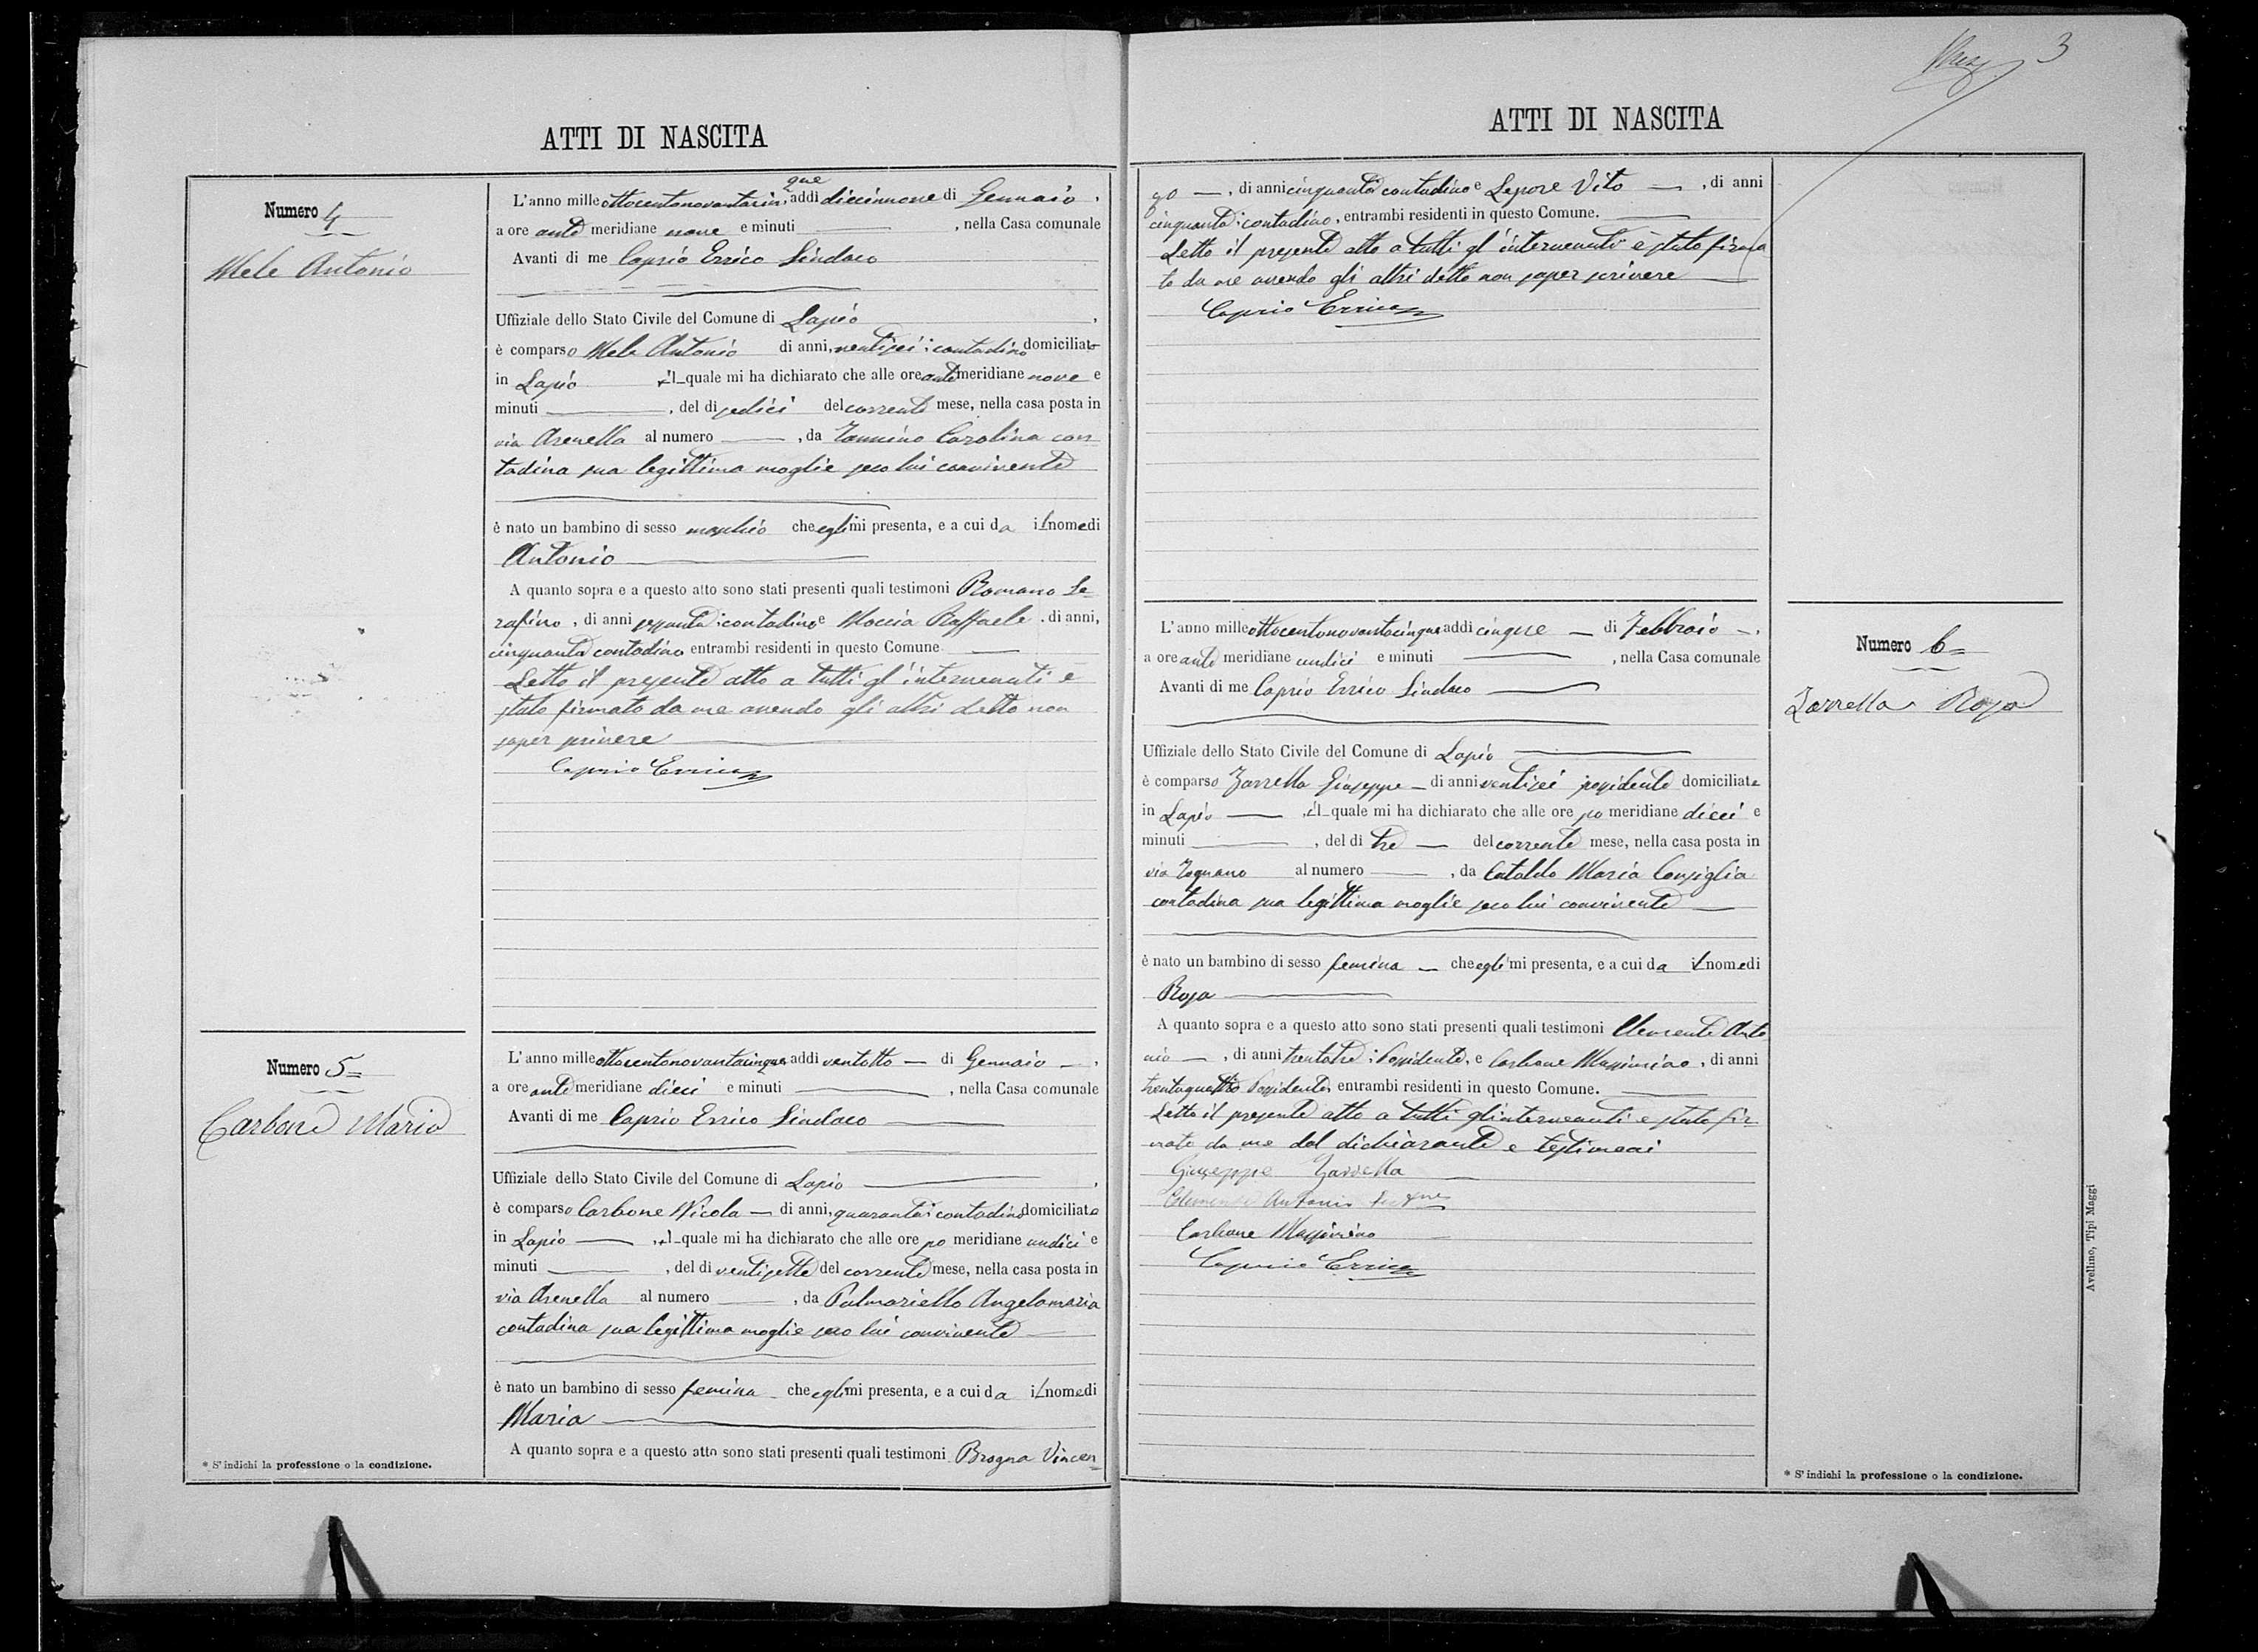 ATTI DI NASCITA
Numero 4
Mele Antonio
L'anno mille ottocentonovantacin que, addì diecinnove di Gennaio,
a ore anti meridiane nove e minuti , nella Casa comunale
Avanti di me Caprio Errico Sindaco
Uffiziale dello Stato Civile del Comune di Lapio,
è comparso Mele Antonio di anni, ventisei; contadino domiciliato
in Lapio il quale mi ha dichiarato che alle ore anti meridiane nove e
minuti , del dì sedici del corrente mese, nella casa posta in
via Arenella al numero , da Iannino Carolina con
tadina sua legittima moglie seco lui convivente
è nato un bambino di sesso maschio che egli mi presenta, e a cui da il nome di
Antonio
A quanto sopra e a questo atto sono stati presenti quali testimoni Romano Se
rafino, di anni sessanta; contadino e Moccia Raffaele, di anni,
cinquanta contadino entrambi residenti in questo Comune
Letto il presente atto a tutti gl'intervenuti è
stato firmato da me avendo gli altri detto non
saper scrivere
Caprio Errico
Numero 5
Carbone Maria
L'anno mille ottocentonovantacinque addì ventotto di Gennaio,
a ore anti meridiane dieci e minuti , nella Casa comunale
Avanti di me Caprio Errico Sindaco
Uffiziale dello Stato Civile del Comune di Lapio,
è comparso Carbone Nicola di anni, quaranta; contadino domiciliato
in Lapio, il quale mi ha dichiarato che alle ore po meridiane undici e
minuti , del dì ventisette del corrente mese, nella casa posta in
via Arenella al numero , da Palmariello Angelamaria
contadina sua legittima moglie seco lui convivente
è nato un bambino di sesso femina che egli mi presenta, e a cui da il nome di
Maria
A quanto sopra e a questo atto sono stati presenti quali testimoni Brogna Vincen
* S'indichi la professione o la condizione.
3
ATTI DI NASCITA
zo, di anni cinquanta contadino e Lepore Vito, di anni
cinquanta; contadino, entrambi residenti in questo Comune.
Letto il presente atto a tutti gl'intervenuti è stato firma
to da me avendo gli altri detto non saper scrivere
Caprio Errico
Numero 6
Zarrella Rosa
L'anno mille ottocentonovantacinque addì cinque di Febbraio,
a ore anti meridiane undici e minuti , nella Casa comunale
Avanti di me Caprio Errico Sindaco
Uffiziale dello Stato Civile del Comune di Lapio
è comparso Zarrella Giuseppe di anni ventisei possidente domiciliato
in Lapio, il quale mi ha dichiarato che alle ore po meridiane dieci e
minuti , del dì tre del corrente mese, nella casa posta in
via al numero , da Cataldo Maria Consiglia
contadina sua legittima moglie seco lui convivente
è nato un bambino di sesso femina che egli mi presenta, e a cui da il nome di
Rosa
A quanto sopra e a questo atto sono stati presenti quali testimoni Clemente Anto
nio, di anni trentatre; Possidente, e Carbone Massimino, di anni
trentaquattro Possidente, entrambi residenti in questo Comune.
Letto il presente atto a tutti gl'intervenuti è stato fir
mato da me dal dichiarante e testimoni
Giuseppe Zarrella
Clemente Antonio
Carbone Massimino
Caprio Errico
* S'indichi la professione o la condizione.
Avellino, Tipi Maggi